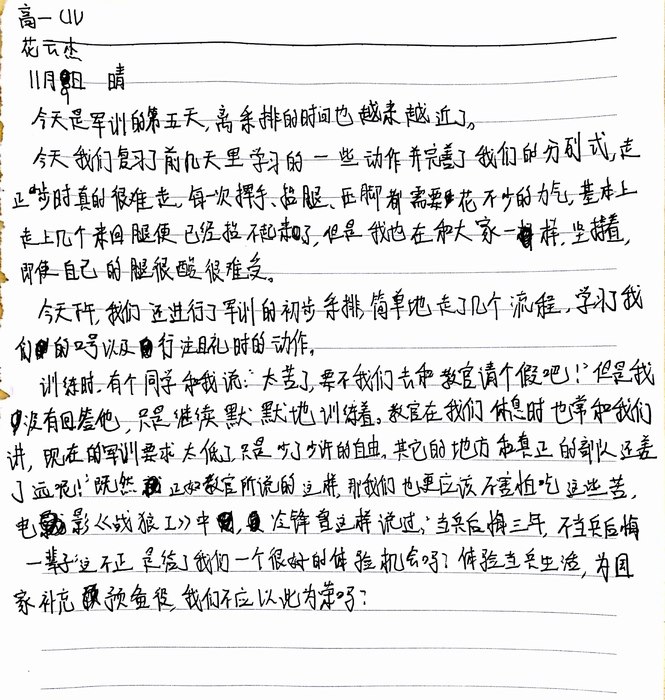 高一(1)
花云杰
11月9日 晴
今天是军训的第五天,离彩排的时间也越来越近了。
今天我们复习了前几天里学习的一些动作并完善了我们的分列式,走
正步时真的很难走,每一次摆手、抬腿、压脚都需要花不少的力气,基本上
走上几个来回腿便已经抬不起来了,但是我也在和大家一样,坚持着,
即使自己的腿很酸很难受。
今天下午,我们还进行了军训的初步彩排,简单地走了几个流程,学习了我
们的口号以及行注目礼时的动作。
训练时,有个同学和我说:“太苦了,要不我们去和教官请个假吧!”但是我
没有回答他,只是继续默默地训练着。教官在我们休息时也常和我们
讲,现在的军训要求太低了,只是少了少许的自由,其它的地方和真正的部队还差
了远呢!”既然正如教官所说的这样,那我们也更应该不害怕吃这些苦,
电影《战狼I》中,冷锋曾这样说过,“当兵后悔三年,不当兵后悔
一辈子”这不正是给了我们一个很好的体验机会吗?体验当兵生活,为国
家补充预备役,我们不应以此为荣吗?